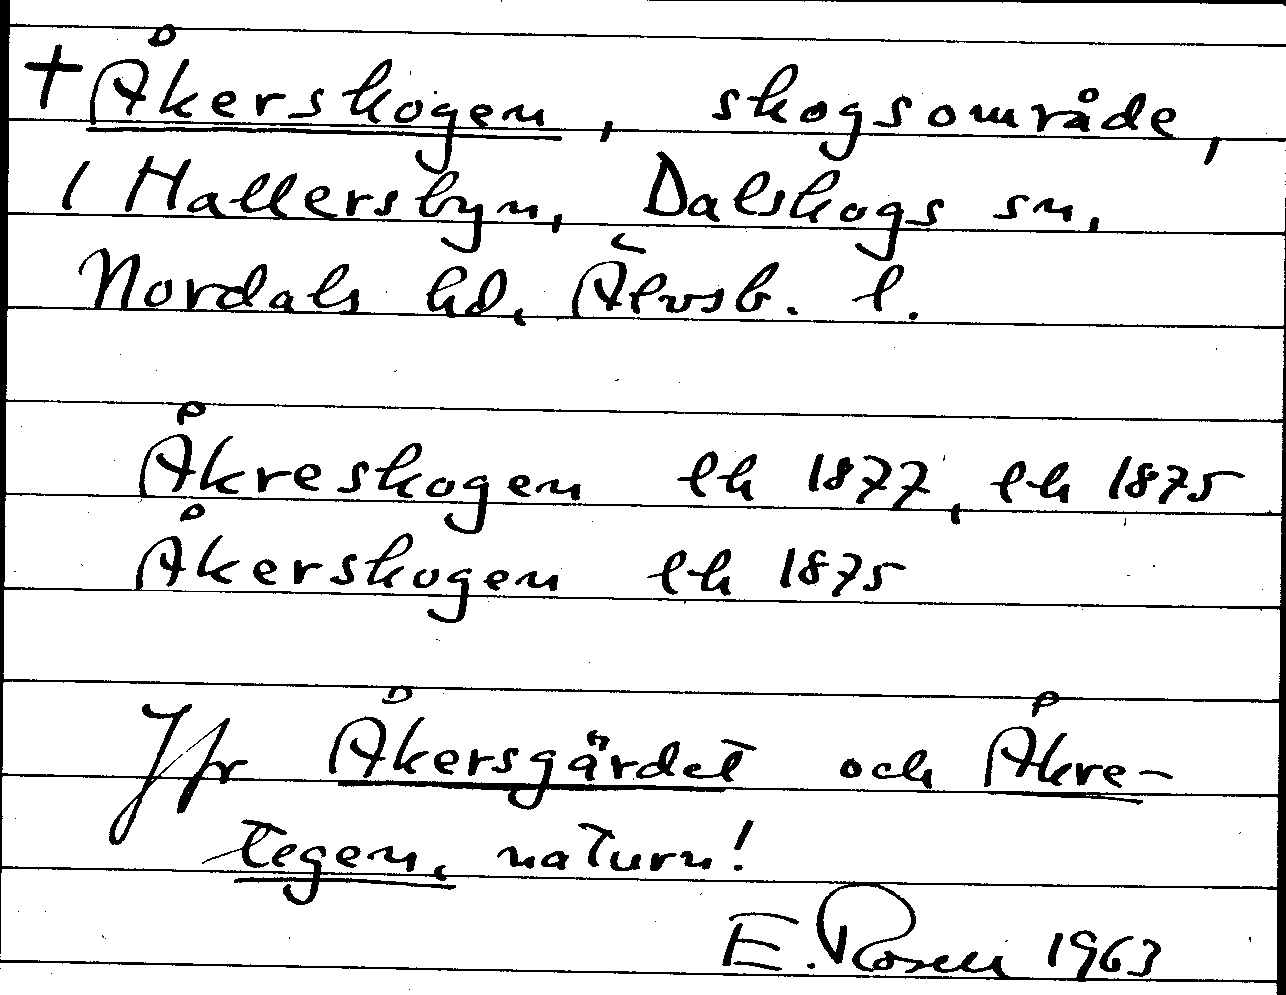 †Åkerskogen, skogsområde,
i Hallersbyn, Dalskogs sn,
Nordals hd, Älvsb. l.
Åkreskogen lh 1877, lh 1875
Åkerskogen lh 1875
Jfr Åkersgärdet och Åkre-
tegen, naturn!
E. Rosell 1963